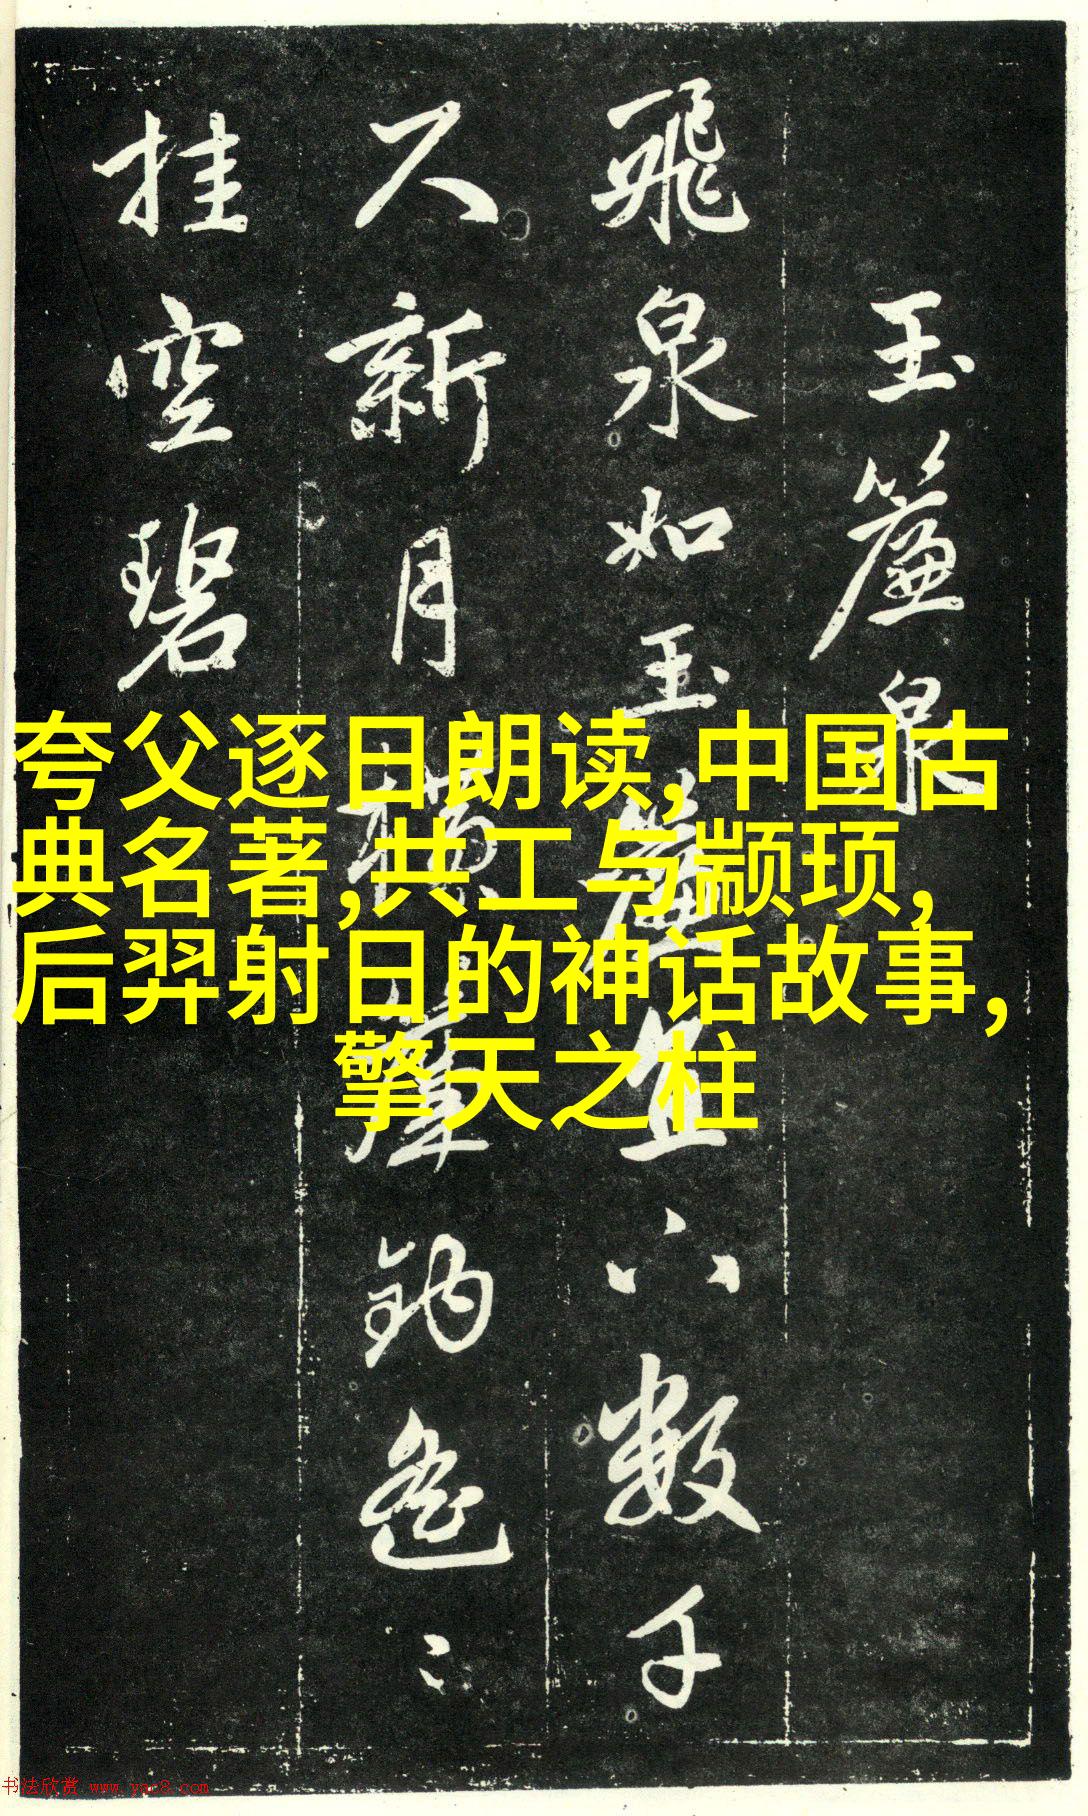 夸父逐日朗读,中国古
典名著,共工与颛顼,
后羿射日的神话故事,
擎天之柱
玉簾泉
飛泉如玉簾直下數千
尺新月橫簾鈎遙〻
挂空碧
书法欣赏 www.yac8.com